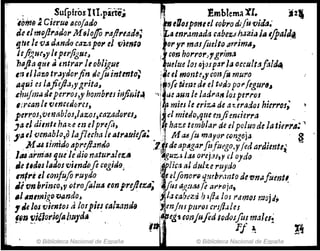 Suspiros II.parte,
como à Cierue acosado
de el mosrador Molosso rastreado;
que le va dando caza por el viento
le sigue, y le persigue,
hasta que à entrar le obligue
en el lazo traydor sin de su intento;
aqui es la fiesta, y grita,
chusma de perros, y hombres infinita
rcan le vencedores,
perros, venablos, lazos, cazadores,
ya el diente haze en el presa,
ya el venablo, ò la flecha le atrauiesa.
Mas timido apretando
las armas que le dio naturaleza
de todos lados viendose cogido,
entre el confuso ruydo
dè vn brinco, y otro salua con presteza,
al enemigo vando,
y de los vientos à los pies calzando
son victoriosa huyda
Emblema XI.
en despone el cobro de su vida;
La enramada cabeza hazia la espalda
por yr mas suelto arrima,
con horror, y grima
buelue los ojos par la oculta falda
de el monte, y con su muro
no se tiene de el todo por seguro,
que aun le ladran los perros
à mies le eriza de azerados hierros;
el miedo, que en si encierra
haze temblar de el poluo de la tierra.
Mas su mayor congoja
es de apagar su fuego, y sed ardiente;
aguza las orejas, y el oydo
aplica al dulce ruydo
el sonoro quebranto de vna fuente
sus aguas se arroja,
la cabeza hasta los ramos moja,
en sus puros cristales
aneg e con su sed todos sus males;
Ff
© Biblioteca Nacional de España
© Biblioteca Nacional de España